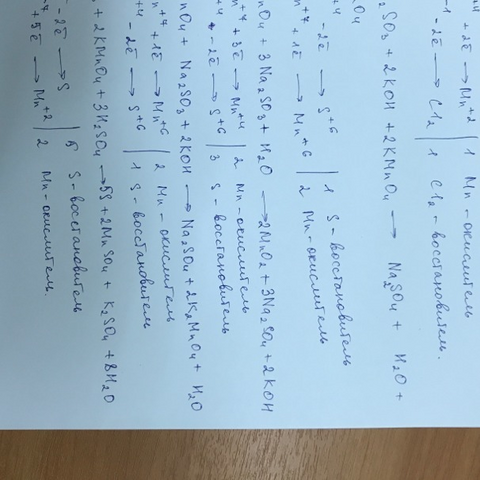 +4 +2ē → Mn+2 | 1 Mn-окислитель
-1 -2ē → Cl2 | 1 Cl2-восстановитель.
2SO3 + 2KOH + 2KMnO4 → Na2SO4 + H2O +
nO4
+4 -2ē → S+6 | 1 S-восстановитель
n+7 +1ē → Mn+6 | 2 Mn-окислитель
nO4 + 3Na2SO3 + H2O → 2MnO2 + 3Na2SO4 + 2KOH
n+7 +3ē → Mn+4 | 2 Mn-окислитель
+4 -2ē → S+6 | 3 S-восстановитель
nO4 + Na2SO3 + 2KOH → Na2SO4 + 2K2MnO4 + H2O
n+7 +1ē → Mn+6 | 2 Mn-окислитель
+4 -2ē → S+6 | 1 S-восстановитель
+ 2KMnO4 + 3H2SO4 → 5S + 2MnSO4 + K2SO4 + 8H2O
-2ē → S | 5 S-восстановитель
+7 +5ē → Mn+2 | 2 Mn-окислитель.